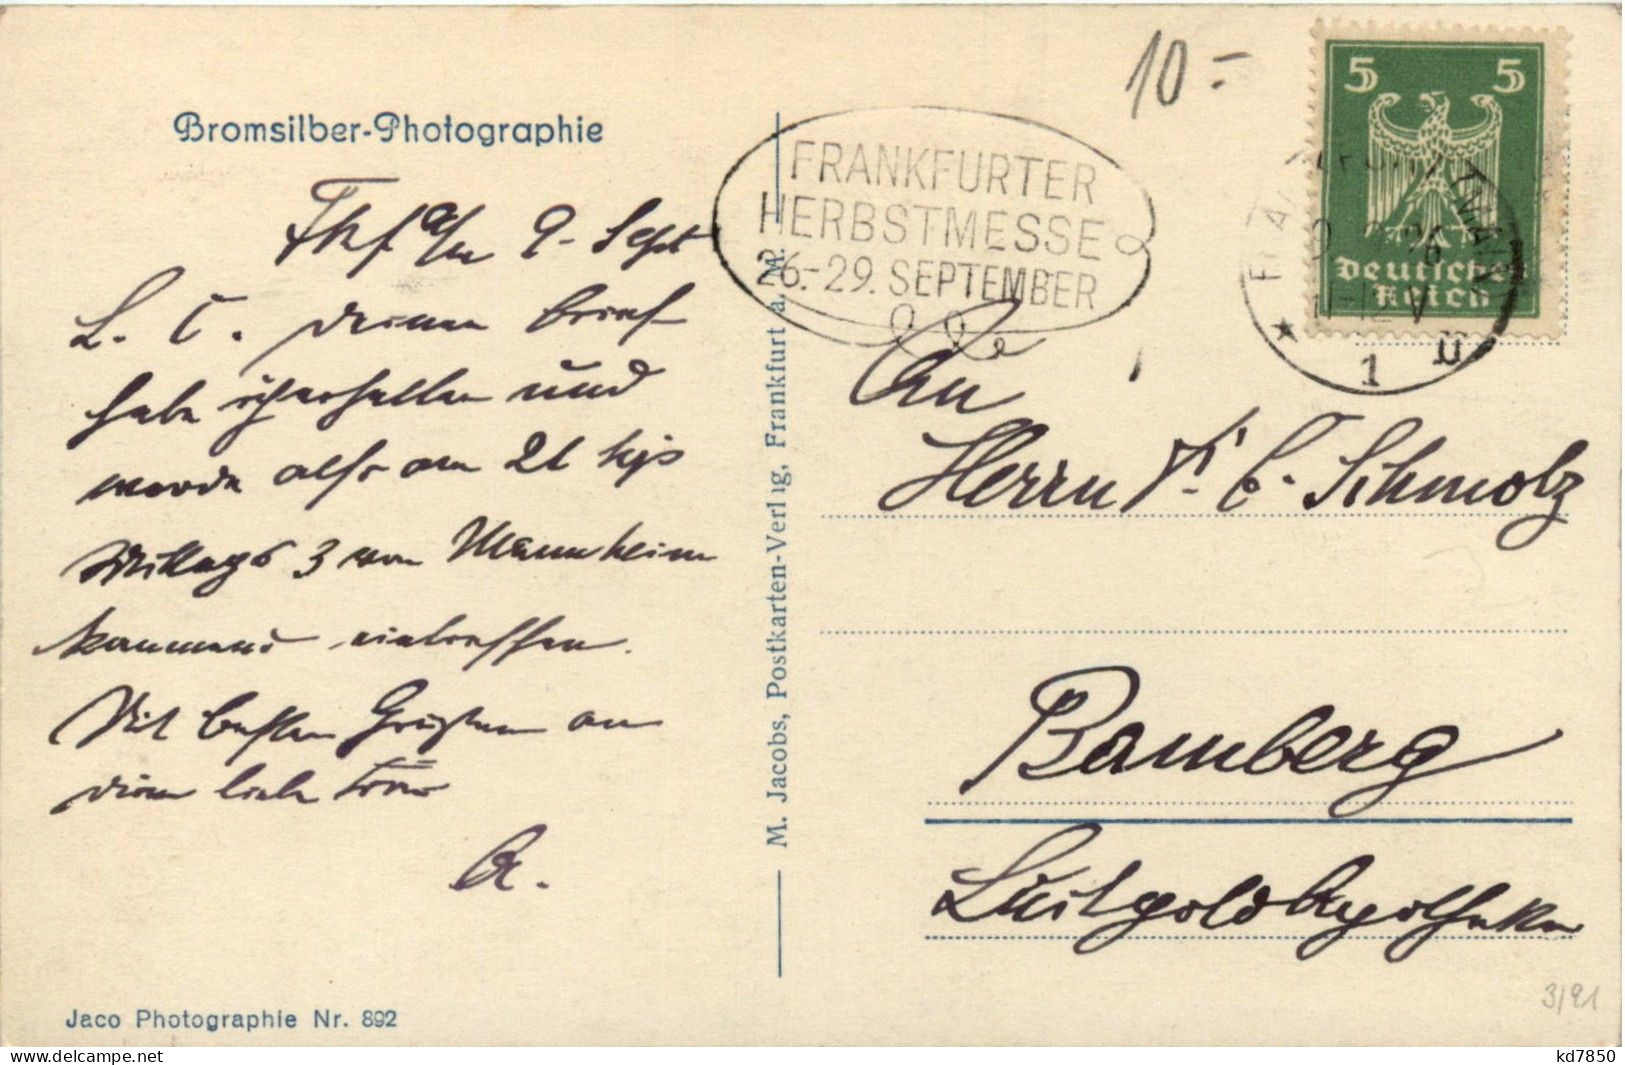 Bromsilber-Photographie
Fkf a/m 9. Sept
L. C. deinen Brief
habe ich erhalten und
werde also am 21
Mittags 3 von Mannheim
kommend eintreffen.
Mit besten Grüßen an
deine liebe Frau
A.
Jaco Photographie Nr. 892
M. Jacobs, Postkarten-Verlag, Frankfurt a. M.
10.-
FRANKFURTER
HERBSTMESSE
26.-29. SEPTEMBER
5 5
Deutsches
Reich
11-12 V
* 1 u
An
Herrn Dr. E. Schmolz
Bamberg
Luitpoldapotheke
3/21
kd7850
delcampe.net